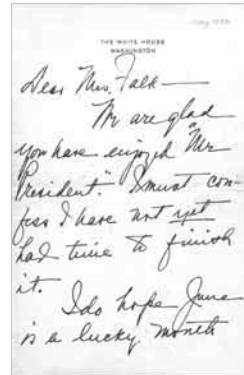 THE WHITE HOUSE
WASHINGTON
Dear Mrs. Falk—
We are glad
you have enjoyed "Mr
President." I must con-
fess I have not yet
had time to finish
it.
I do hope June
is a lucky month